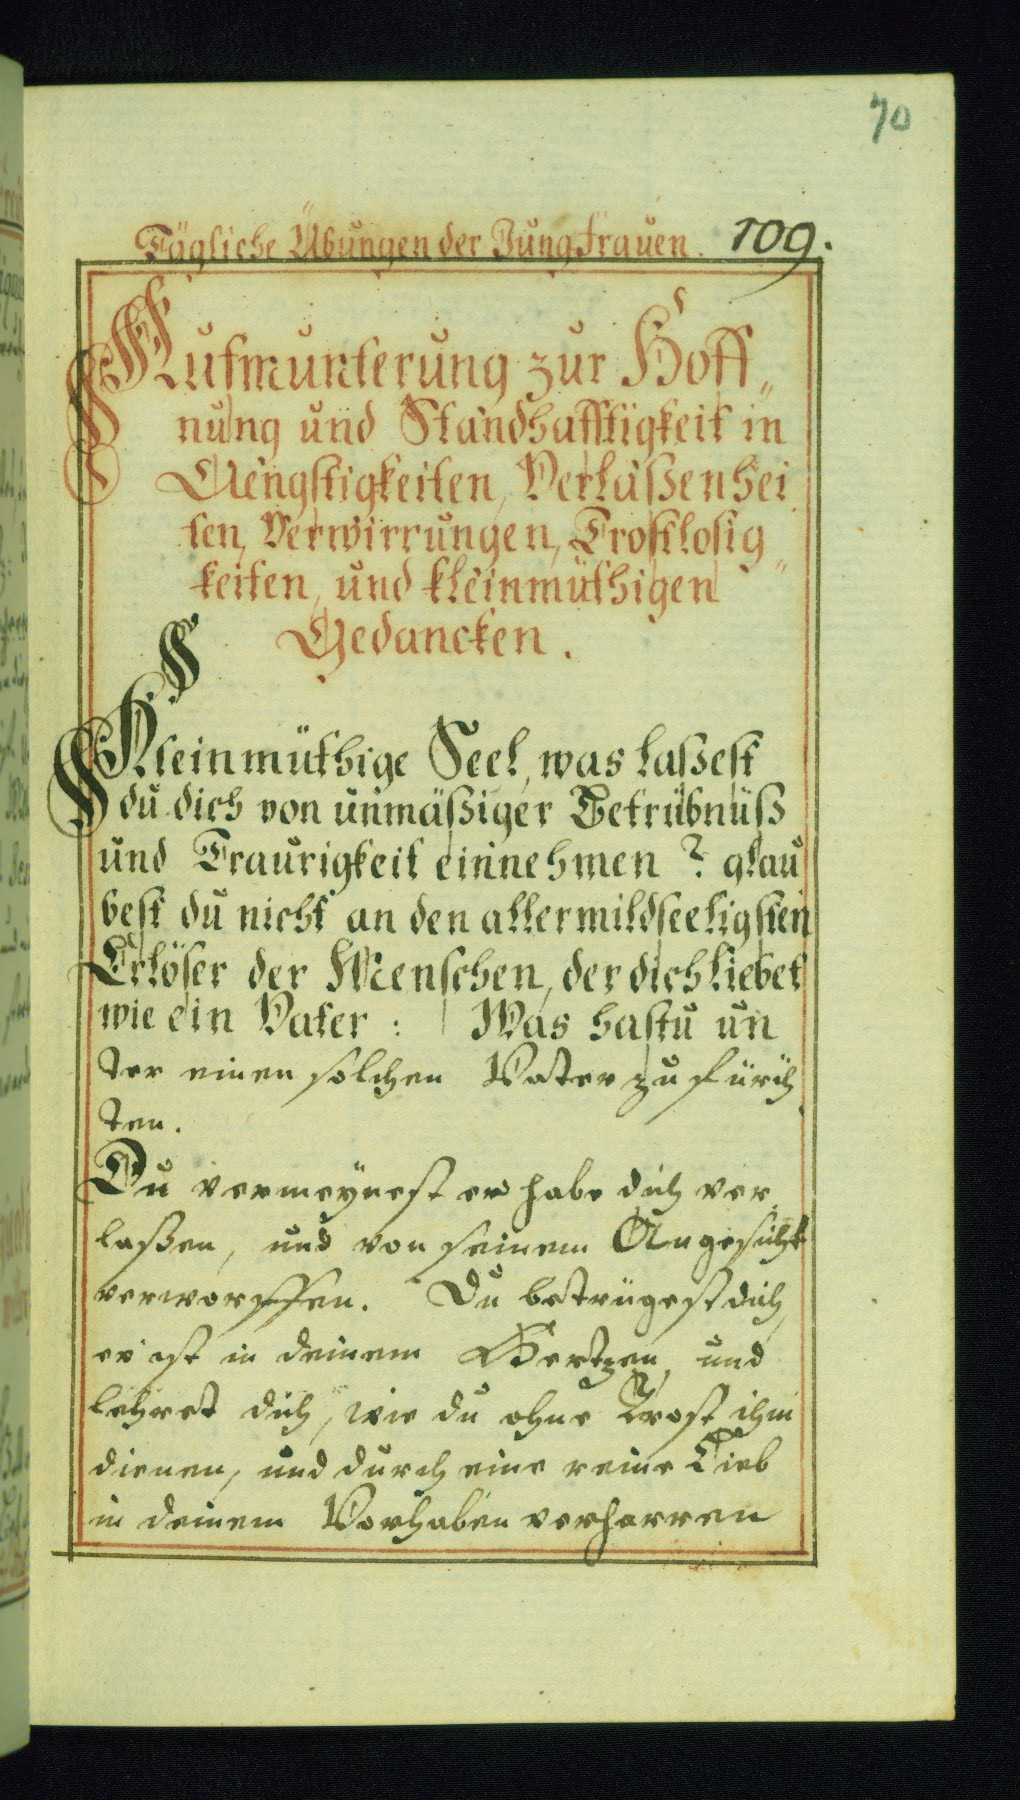 70
Tägliche Übungen der Jungfrauen. 109.
Aufmunterung zur Hoff„
nung und Standhafftigkeit in
Aengstigkeiten, Verlaßenhei
ten, Verwirrungen, Trostlosig„
keiten, und kleinmüthigen
Gedancken.
Kleinmüthige Seel, was laßest
du dich von unmäßiger Betrübnüß
und Traurigkeit einnehmen? glau
best du nicht an den allermildseeligsten
Erlöser der Menschen, der dich liebet
wie ein Vater: Was hastu un
ter einen solchen Vater zu fürch
ten.
Du vermeynest er habe dich ver
laßen, und von seinem Angesicht
verworffen. Du betrügest dich,
er ist in deinem Hertzen, und
lehret dich, wie du ohne Trost ihm
dienen, und durch eine reine Lieb
in deinem Vorhaben verharren